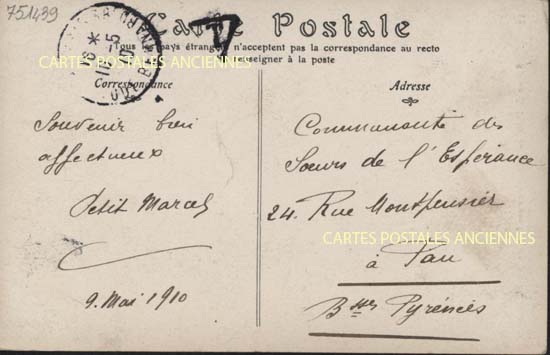 751439
Carte Postale
Tous les pays étrangers n'acceptent pas la correspondance au recto
renseigner à la poste
CARTES POSTALES ANCIENNES
Correspondance
Souvenir bien
affectueux
Petit Marcel
9. Mai 1910
Adresse
Communauté des
Sœurs de l'Espérance
24. Rue Montpensier
CARTES POSTALES ANCIENNES
à Pau
Bses Pyrénées
T